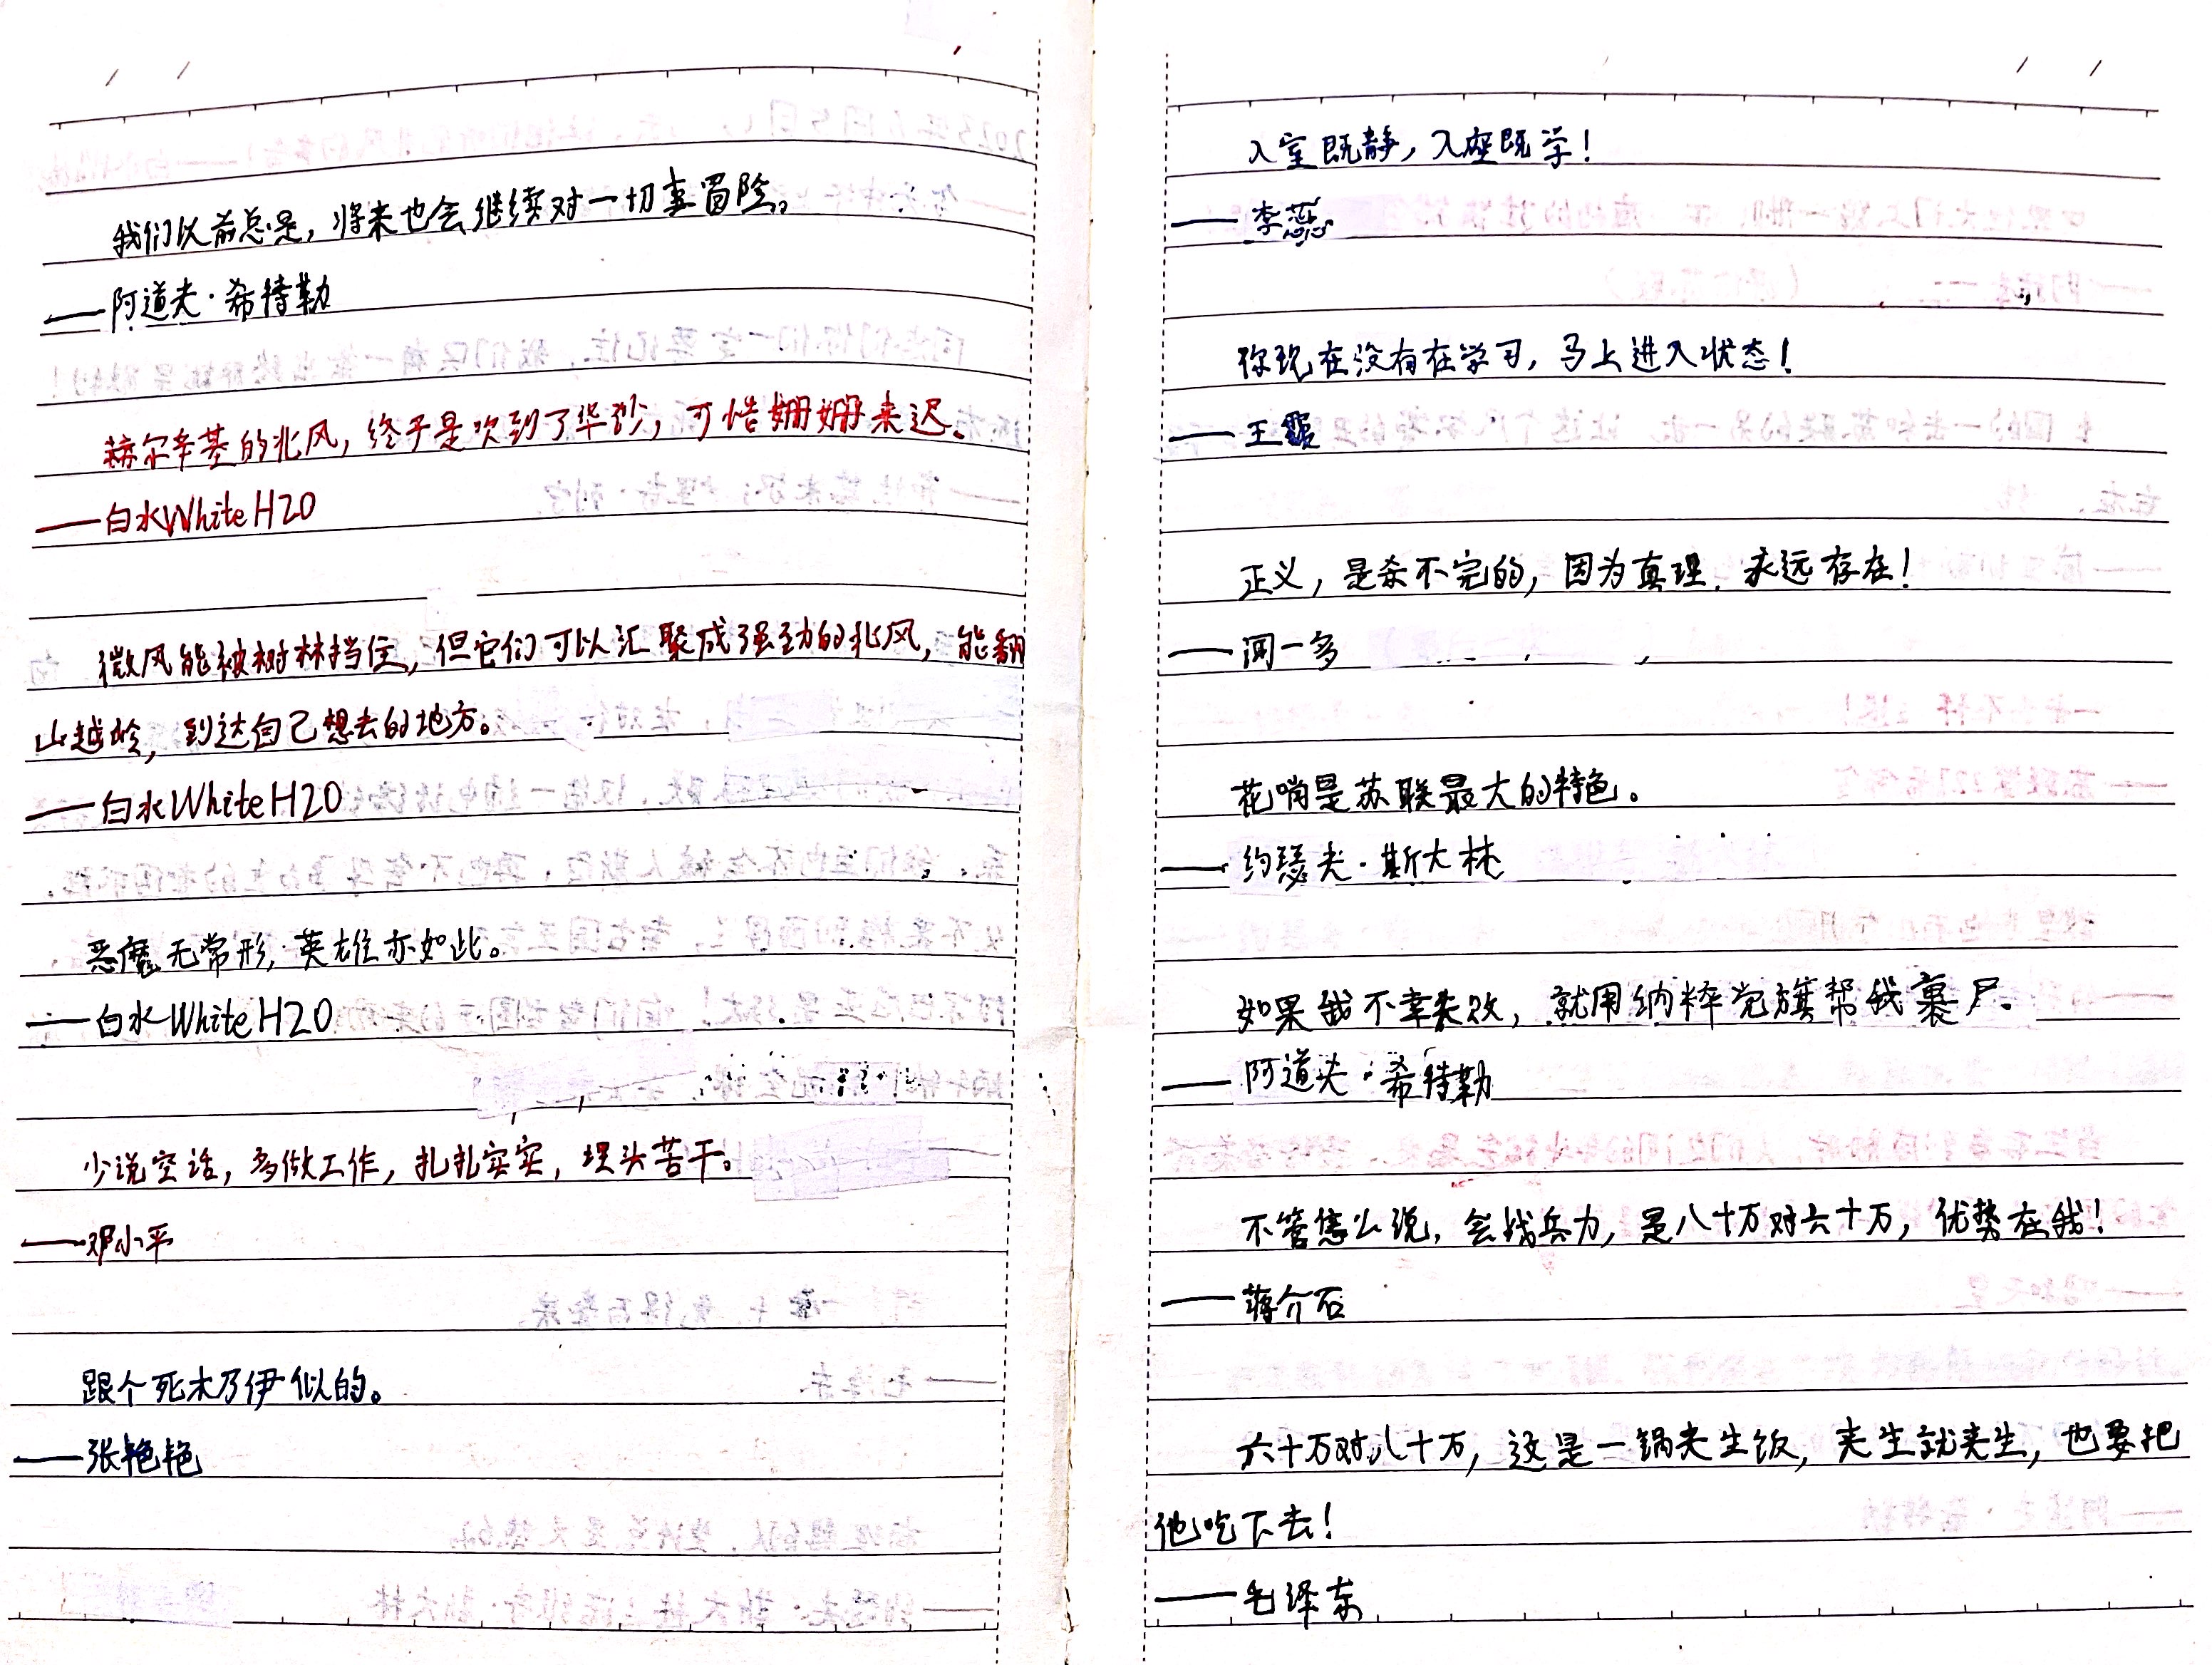 我们以前总是，将来也会继续对一切事冒险。
——阿道夫·希特勒
赫尔辛基的北风，终于是吹到了华沙，可惜姗姗来迟。
——白水WhiteH2O
微风能被树林挡住，但它们可以汇聚成强劲的北风，能翻
山越岭，到达自己想去的地方。
——白水WhiteH2O
恶魔无常形，英雄亦如此。
——白水WhiteH2O
少说空话，多做工作，扎扎实实，埋头苦干。
——邓小平
跟个死木乃伊似的。
——张艳艳
入室既静，入座既学！
——李蕊
你现在没有在学习，马上进入状态！
——王霞
正义，是杀不完的，因为真理，永远存在！
——闻一多
花哨是苏联最大的特色。
——约瑟夫·斯大林
如果我不幸失败，就用纳粹党旗帮我裹尸。
——阿道夫·希特勒
不管怎么说，会战兵力，是八十万对六十万，优势在我！
——蒋介石
六十万对八十万，这是一锅夹生饭，夹生就夹生，也要把
他吃下去！
——毛泽东